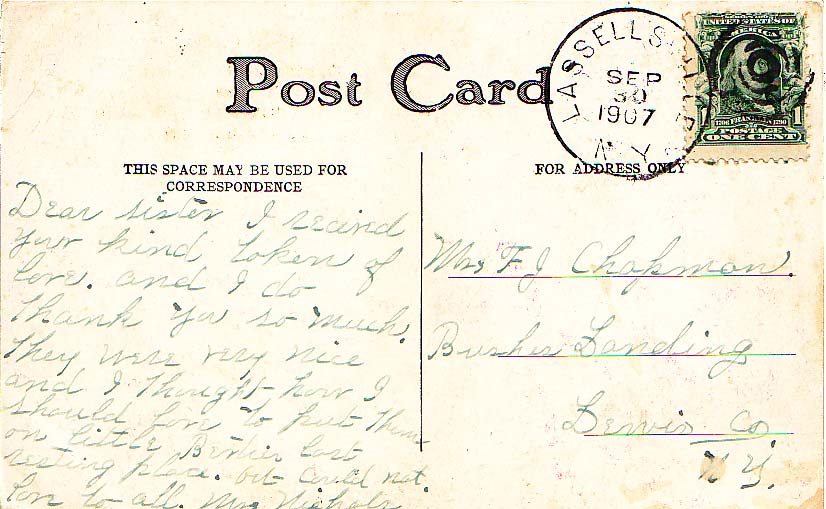 Post Card
LASSELLSVILLE
SEP
30
1907
N.Y.
UNITED STATES OF
AMERICA
1706 FRANKLIN 1790
1 POSTAGE 1
ONE CENT
THIS SPACE MAY BE USED FOR
CORRESPONDENCE
FOR ADDRESS ONLY
Dear sister I receivd
your kind token of
love. and I do
thank you so much.
they were very nice
and I thought how I
should love to put them
on little Berties last
resting place. but could not.
love to all. Mrs Nichols
Mrs F J Chapman.
Landing
Lewis Co
N Y.